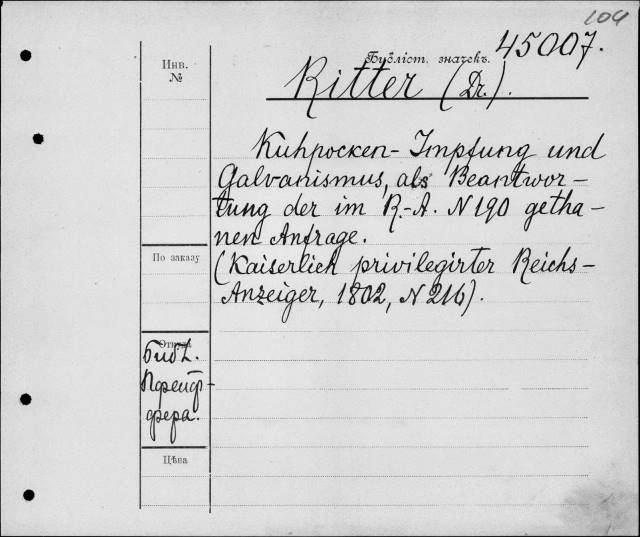 104
Библіот. значекъ.
45007.
Инв.
№
Ritter (Dr.).
Kuhpocken-Impfung und
Galvanismus, als Beantwor-
tung der im R.-A. N 190 getha-
nen Anfrage.
По заказу
(Kaiserlich privilegirter Reichs-
Anzeiger, 1802, N 216).
Откуда
Библ.
Пфейф-
фера.
Цѣна